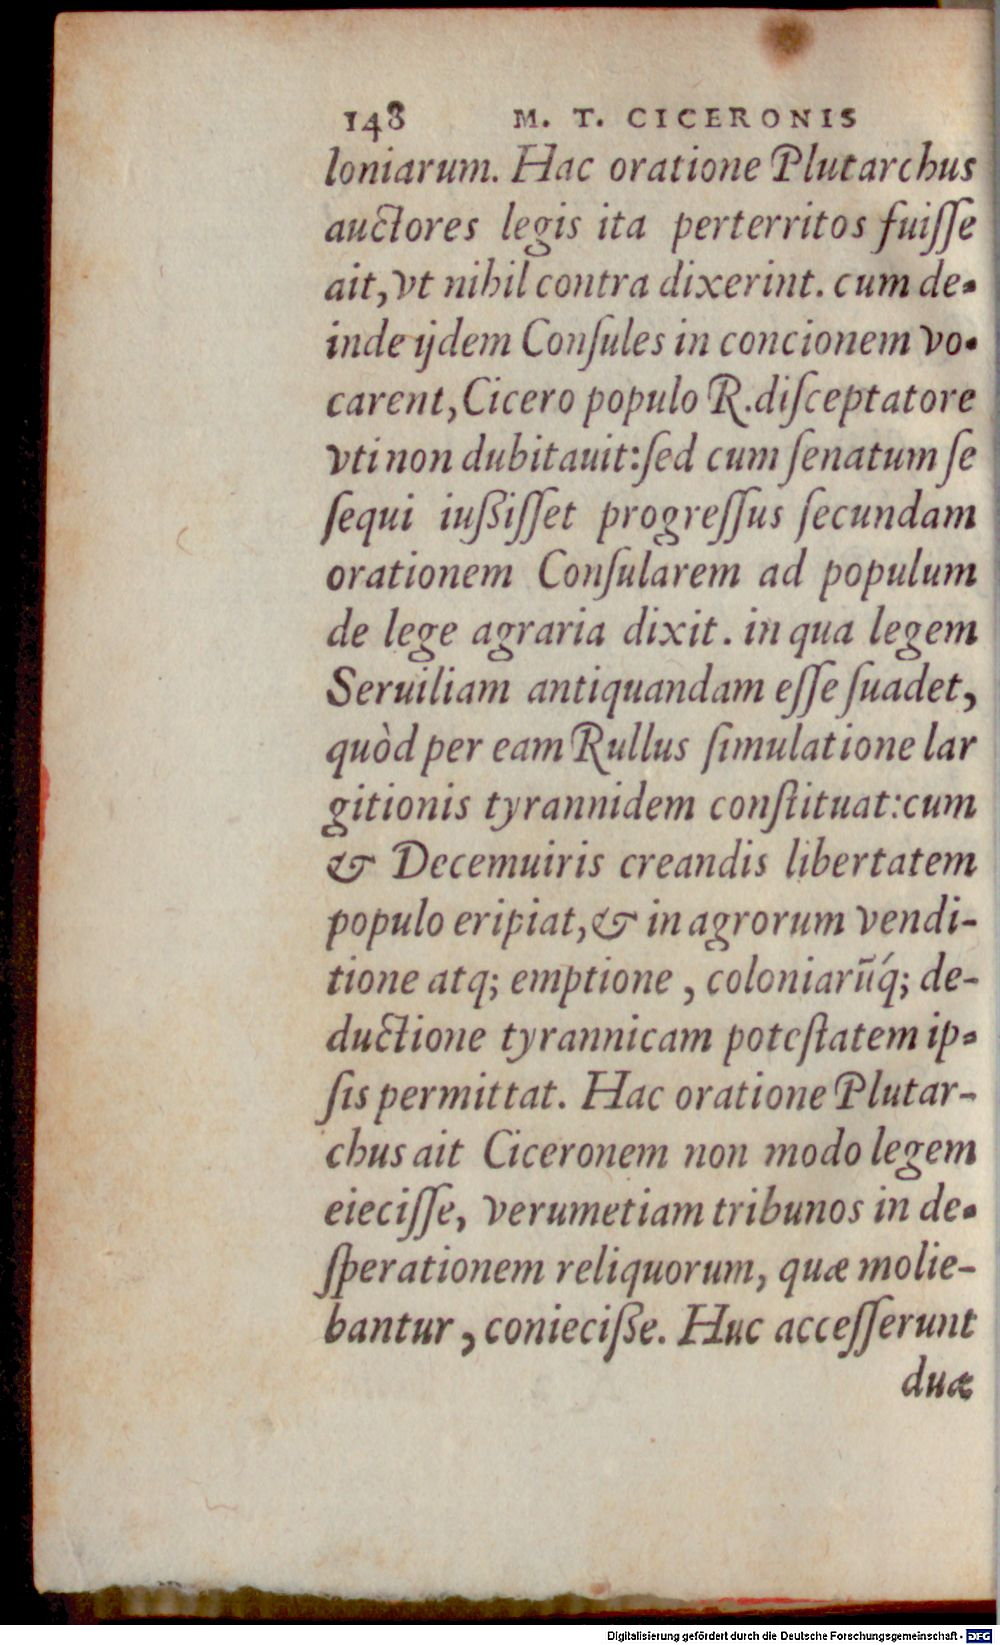 148 M. T. CICERONIS
loniarum. Hac oratione Plutarchus
auctores legis ita perterritos fuiſſe
ait, vt nihil contra dixerint. cum de-
inde ijdem Conſules in concionem vo-
carent, Cicero populo R. diſceptatore
vti non dubitauit: ſed cum ſenatum ſe
ſequi iuſsiſſet progreſſus ſecundam
orationem Conſularem ad populum
de lege agraria dixit. in qua legem
Seruiliam antiquandam eſſe ſuadet,
quòd per eam Rullus ſimulatione lar
gitionis tyrannidem conſtituat: cum
& Decemuiris creandis libertatem
populo eripiat, & in agrorum vendi-
tione atq; emptione, coloniarūq́; de-
ductione tyrannicam poteſtatem ip-
ſis permittat. Hac oratione Plutar-
chus ait Ciceronem non modo legem
eieciſſe, verumetiam tribunos in de-
ſperationem reliquorum, quæ molie-
bantur, conieciſse. Huc acceſſerunt
duæ
Digitalisierung gefördert durch die Deutsche Forschungsgemeinschaft - DFG